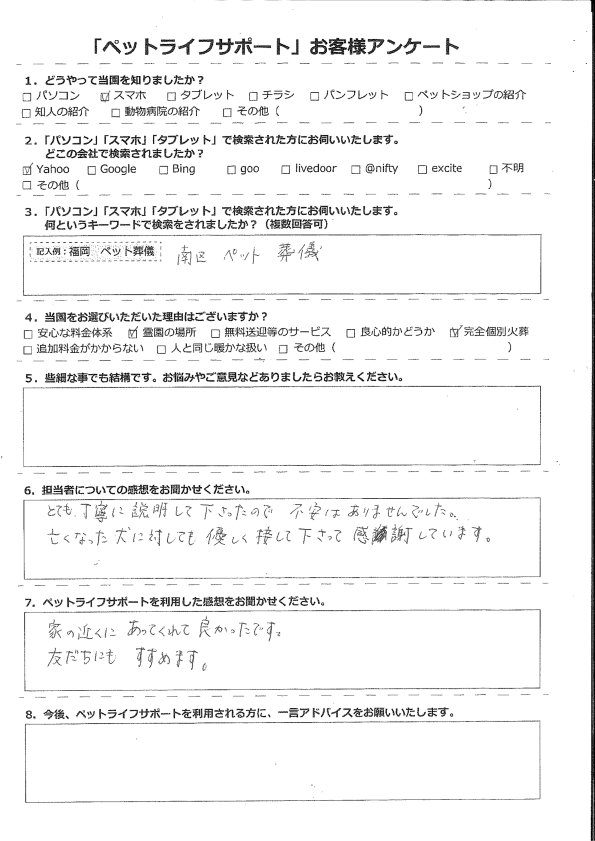 「ペットライフサポート」お客様アンケート
1．どうやって当園を知りましたか？
□ パソコン ☑ スマホ □ タブレット □ チラシ □ パンフレット □ ペットショップの紹介
□ 知人の紹介 □ 動物病院の紹介 □ その他（ ）
2．「パソコン」「スマホ」「タブレット」で検索された方にお伺いいたします。
どこの会社で検索されましたか？
☑ Yahoo □ Google □ Bing □ goo □ livedoor □ @nifty □ excite □ 不明
□ その他（ ）
3．「パソコン」「スマホ」「タブレット」で検索された方にお伺いいたします。
何というキーワードで検索をされましたか？（複数回答可）
記入例：福岡 ペット葬儀 南区 ペット 葬儀
4．当園をお選びいただいた理由はございますか？
□ 安心な料金体系 ☑ 霊園の場所 □ 無料送迎等のサービス □ 良心的かどうか ☑ 完全個別火葬
□ 追加料金がかからない □ 人と同じ暖かな扱い □ その他（ ）
5．些細な事でも結構です。お悩みやご意見などありましたらお教えください。
6．担当者についての感想をお聞かせください。
とても丁寧に説明して下さったので 不安はありませんでした。
亡くなった犬に対しても優しく接して下さって感謝しています。
7．ペットライフサポートを利用した感想をお聞かせください。
家の近くにあってくれて良かったです。
友だちにもすすめます。
8．今後、ペットライフサポートを利用される方に、一言アドバイスをお願いいたします。